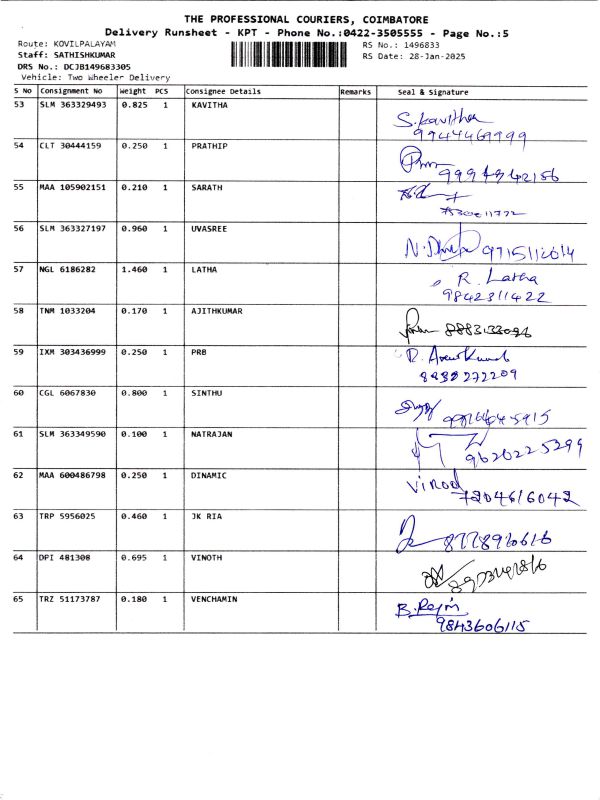 THE PROFESSIONAL COURIERS, COIMBATORE
Delivery Runsheet - KPT - Phone No.:0422-3505555 - Page No.:5
Route: KOVILPALAYAM RS No.: 1496833
Staff: SATHISHKUMAR RS Date: 28-Jan-2025
DRS No.: DCJB149683305
Vehicle: Two Wheeler Delivery
S No Consignment No Weight PCS Consignee Details Remarks Seal & Signature
53 SLM 363329493 0.825 1 KAVITHA
S.Kavitha
9944469999
54 CLT 30444159 0.250 1 PRATHIP
9994942156
55 MAA 105902151 0.210 1 SARATH
56 SLM 363327197 0.960 1 UVASREE
57 NGL 6186282 1.460 1 LATHA
R. Latha
9842311422
58 TNM 1033204 0.170 1 AJITHKUMAR
8883133096
59 IXM 303436999 0.250 1 PRB
60 CGL 6067830 0.800 1 SINTHU
61 SLM 363349590 0.100 1 NATRAJAN
9620225299
62 MAA 600486798 0.250 1 DINAMIC
7204616042
63 TRP 5956025 0.460 1 JK RIA
64 DPI 481308 0.695 1 VINOTH
65 TRZ 51173787 0.180 1 VENCHAMIN
9843606115